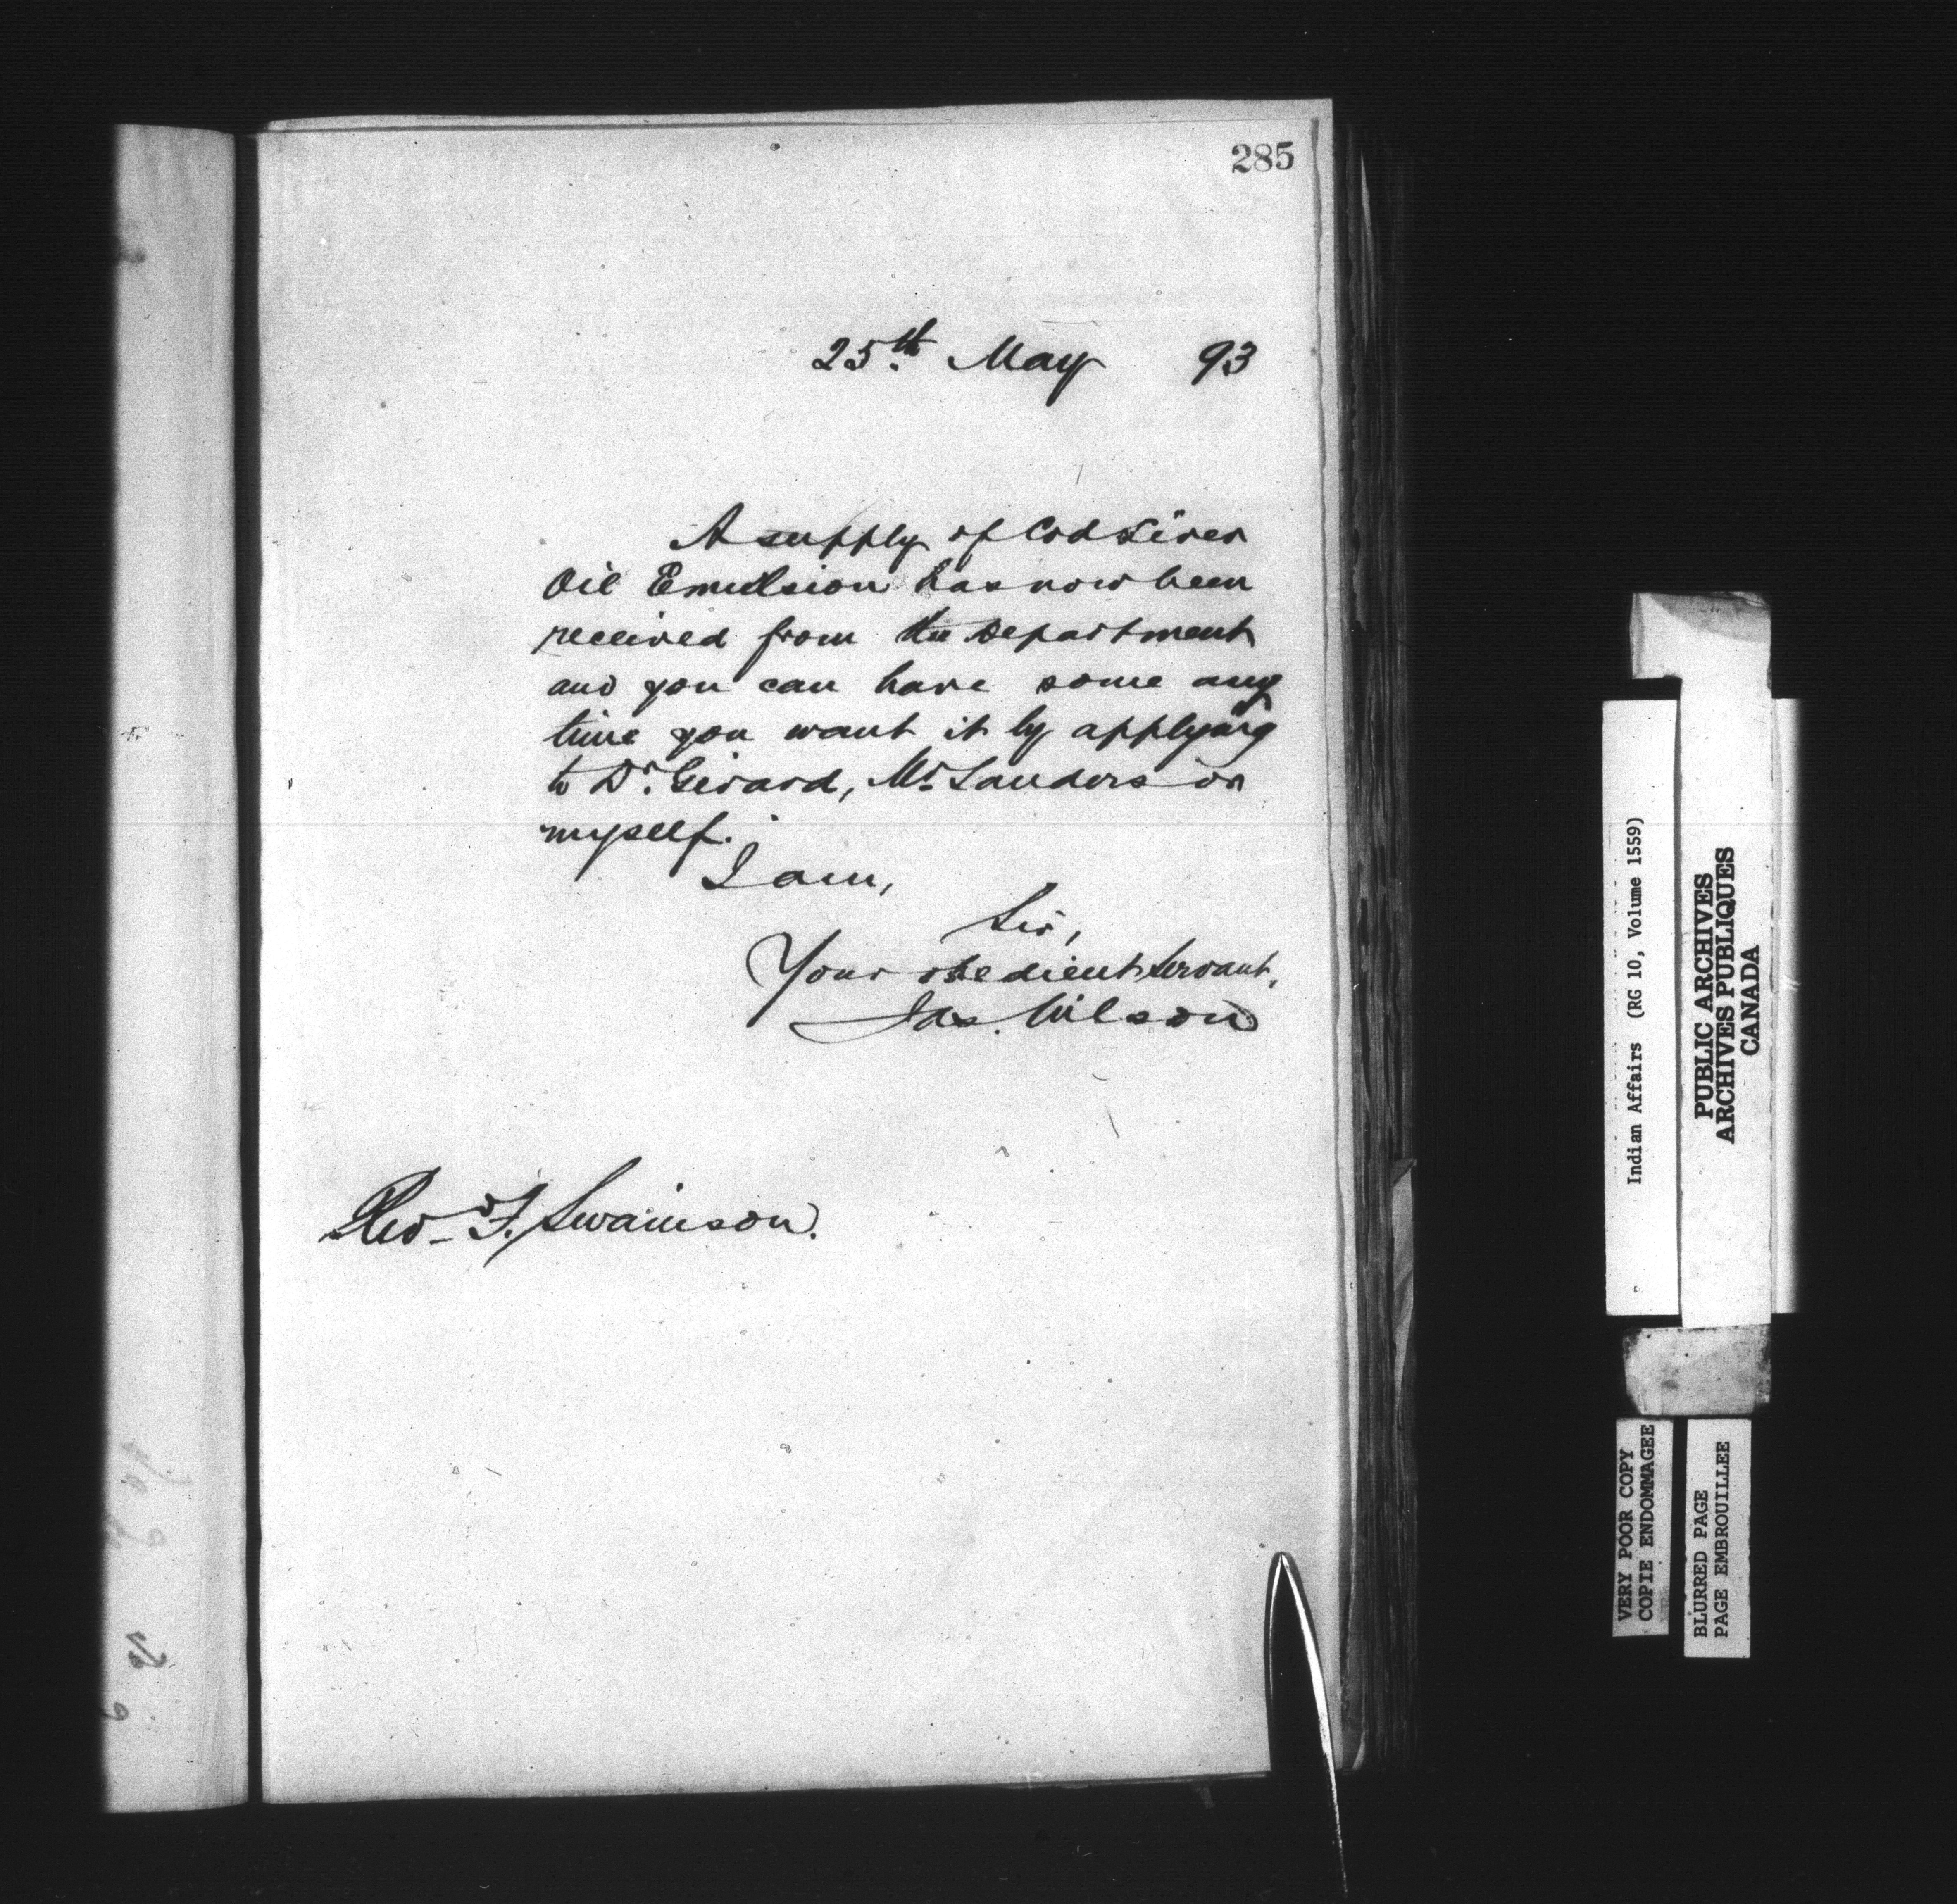 285
25th May 93
A supply of Cod Liver
Oil Emulsion has now been
received from the Department
and you can have some any
time you want it by applying
to Dr. Girard, Mr. Sanders or
myself.
I am,
Sir,
Your obedient Servant,
Jas. Wilson
Revd F. Swainson.
Indian Affairs (RG 10, Volume 1559)
PUBLIC ARCHIVES
ARCHIVES PUBLIQUES
CANADA
VERY POOR COPY
COPIE ENDOMMAGEE
BLURRED PAGE
PAGE EMBROUILLEE